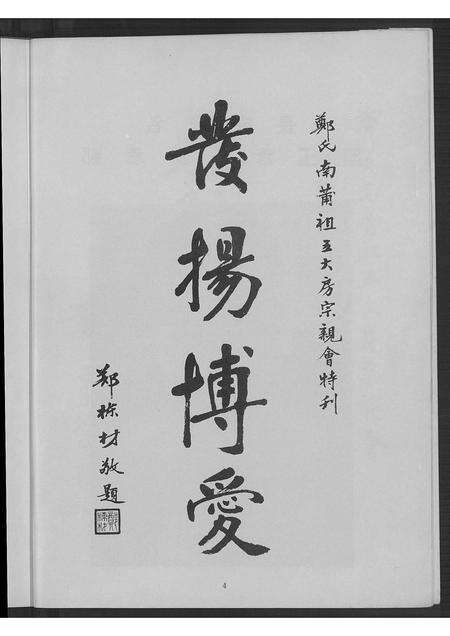 鄭氏南莆祖五大房宗親會特刊
發揚博愛
鄭栋材敬題
4